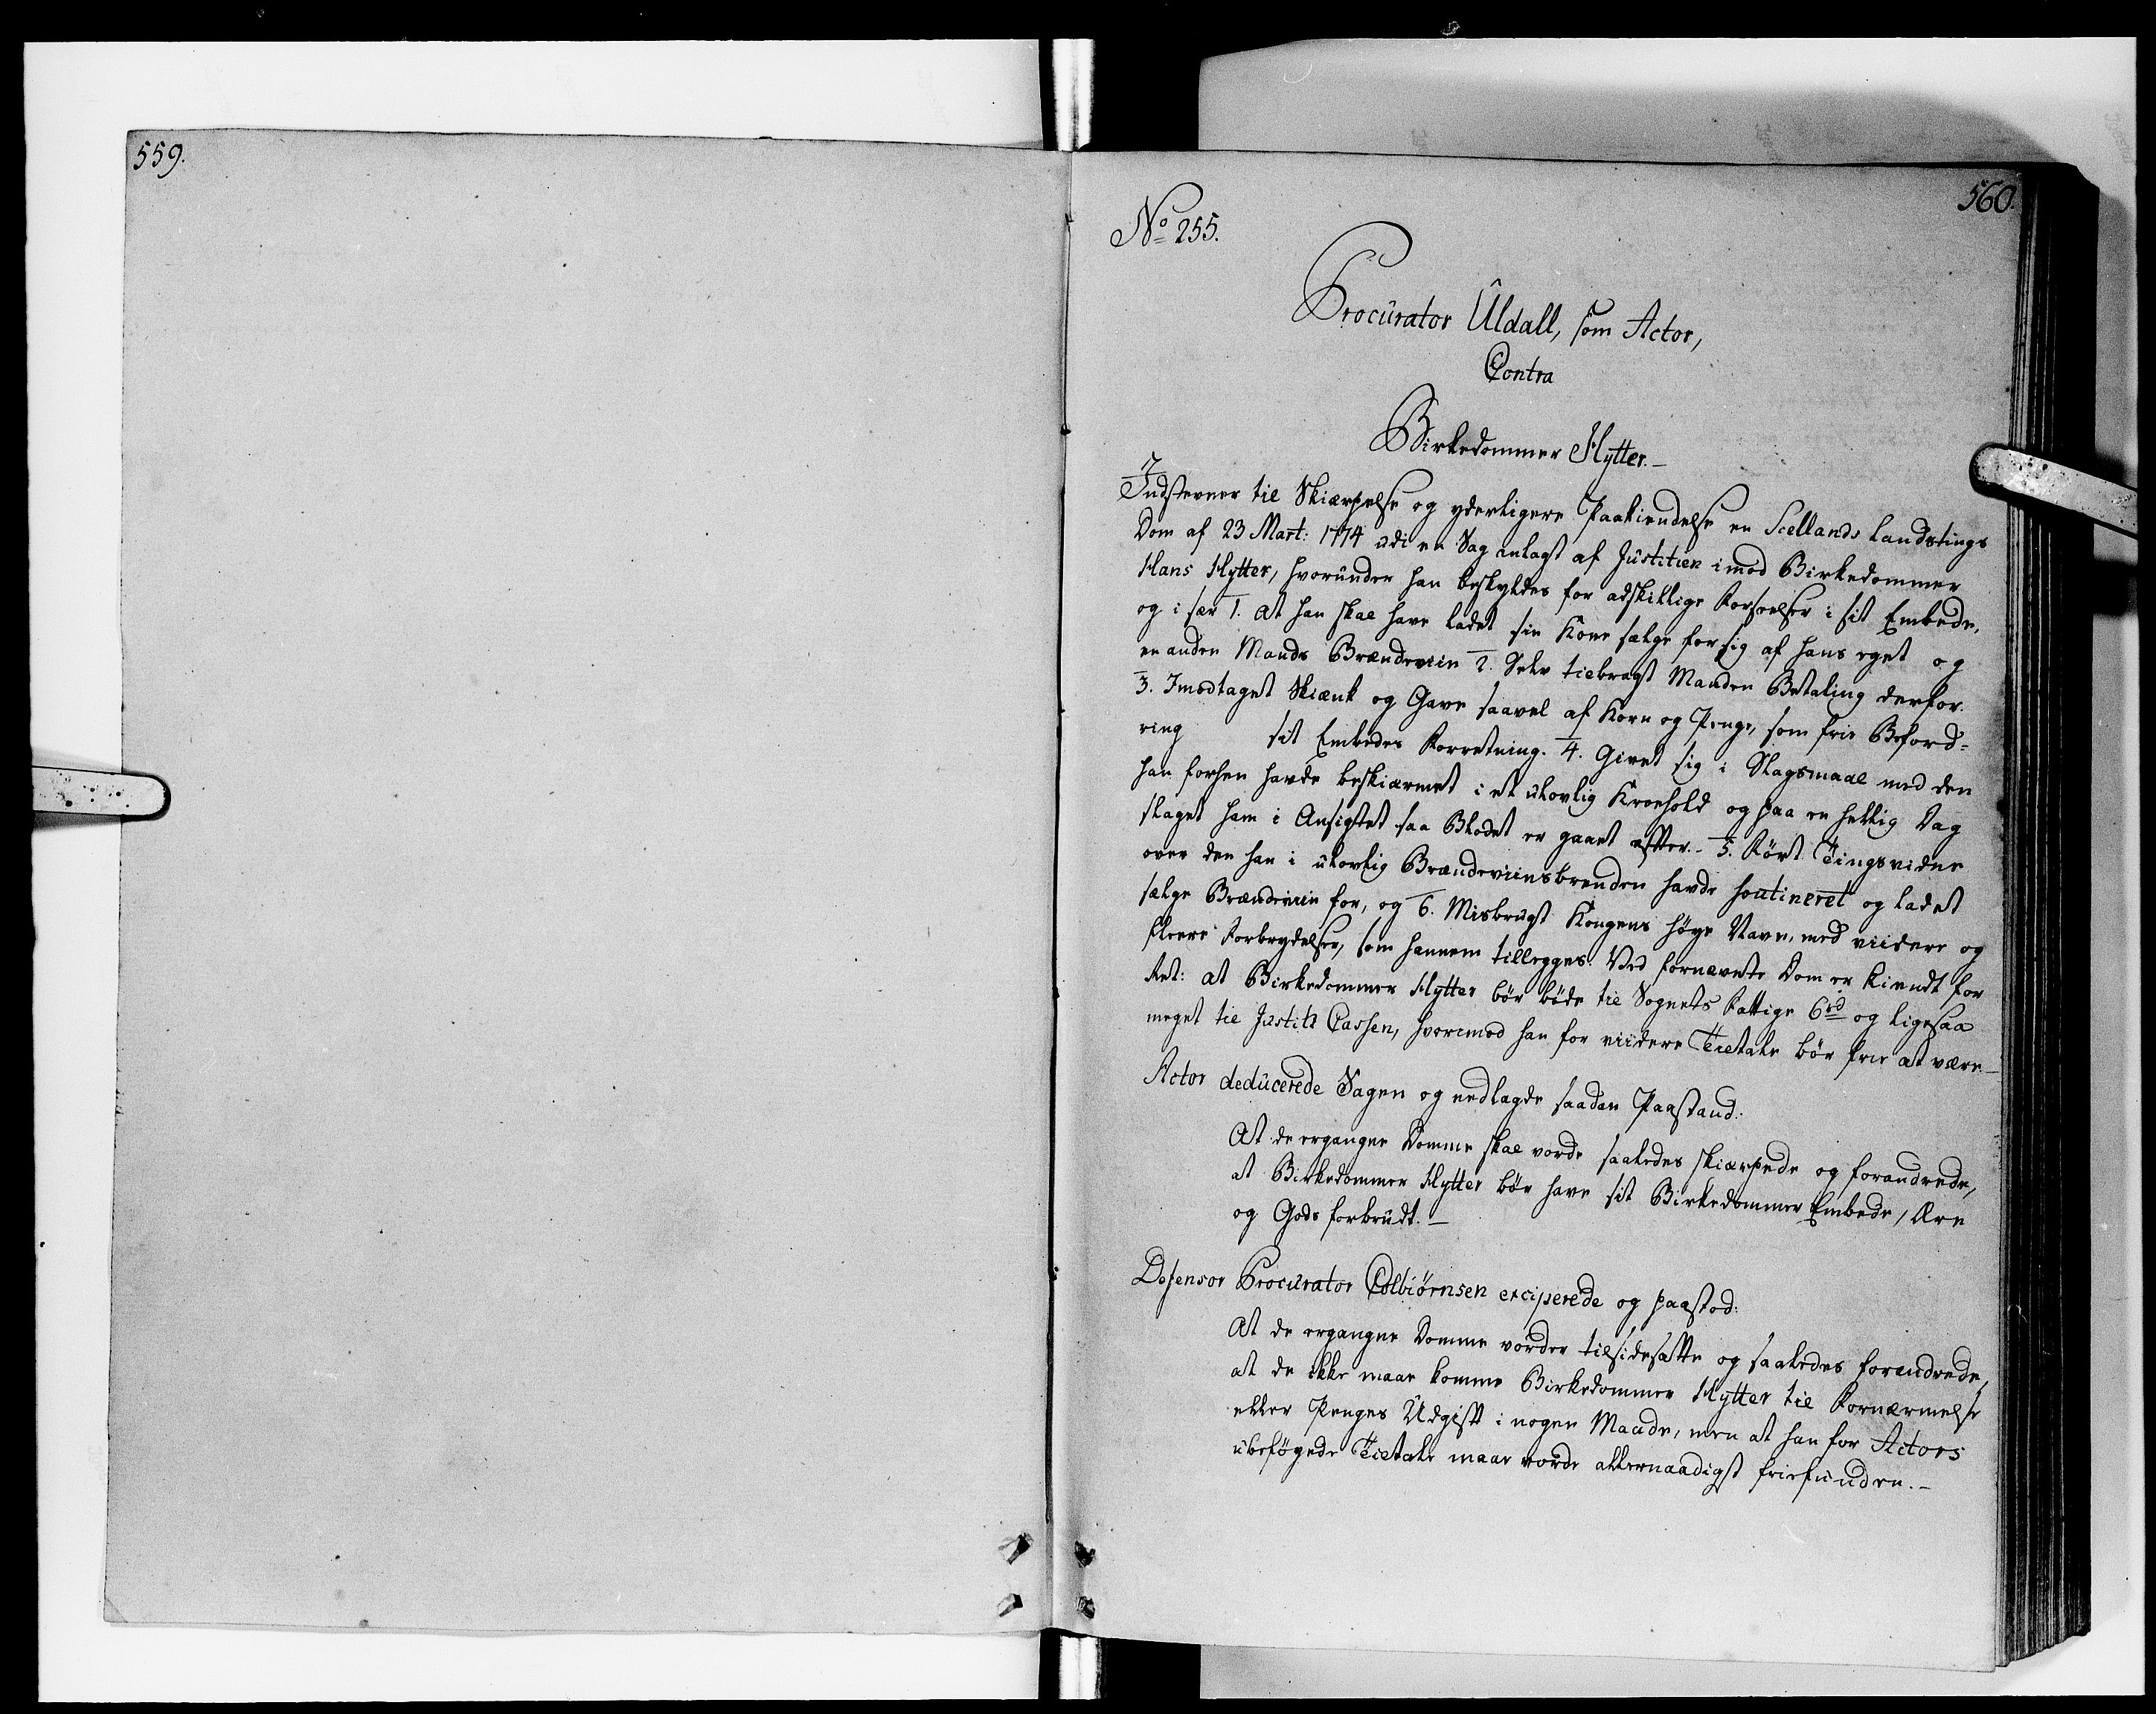 559.
560.
No 255.
Procurator Uldall, som Actor,
Contra
Birkedommer Hytter.-
Indstevner til Skiærpelse og yderligere Paakiendelse en Siellands Landstings
Dom af 23 Mart: 1774 udi en Sag anlagt af Justitien imod Birkedommer
Hans Hytter, hvorunder han beskyldes for adskillige Forseelser i sit Embede,
og i sær 1. at han skal have ladet sin Kone sælge for sig af hans eget og
en anden Mands Brændeviin 2. Selv tilbragt Manden Betaling derfor.
3. Imodtaget Skiænk og Gave saavel af Korn og Penge, som frie Beford-
ring sit Embedes Forretning. 4. Givet sig i Slagsmaal med den
han forhen havde beskiærmet i et ulovlig Kroehold og paa en hellig Dag
slaget ham i Ansigtet saa Blodet er gaaet efter.- 5. Ført Tingsvidne
over den han i ulovlig Brændeviinsbrenden havde soutineret og ladet
sælge Brændeviin for, og 6. Misbrugt Kongens høye Navn, med viidere og
fleere Forbrydelser, som hannem tillegges. Ved fornævnte Dom er kiendt for
Ret: at Birkedommer Hytter bør bøde til Sognets Fattige 6 rd og ligesaa
meget til Justits Cassen, hvorimod han for viidere Tiltale bør frie at være.-
Actor deducerede Sagen og nedlagde saadan Paastand:
At de ergangne Domme skal vorde saaledes skiærpede og forandrede,
at Birkedommer Hytter bør have sit Birkedommer Embede, Ære
og Gods forbrudt.-
Defensor Procurator Colbiørnsen exciperede og paastod:
At de ergangne Domme vorder tilsidesatte og saaledes forandrede,
at de ikke maae komme Birkedommer Hytter til Fornærmelse
eller Penges Udgift i nogen Maade, men at han for Actors
ubeføyede Tiltale maae vorde allernaadigst friefunden.-